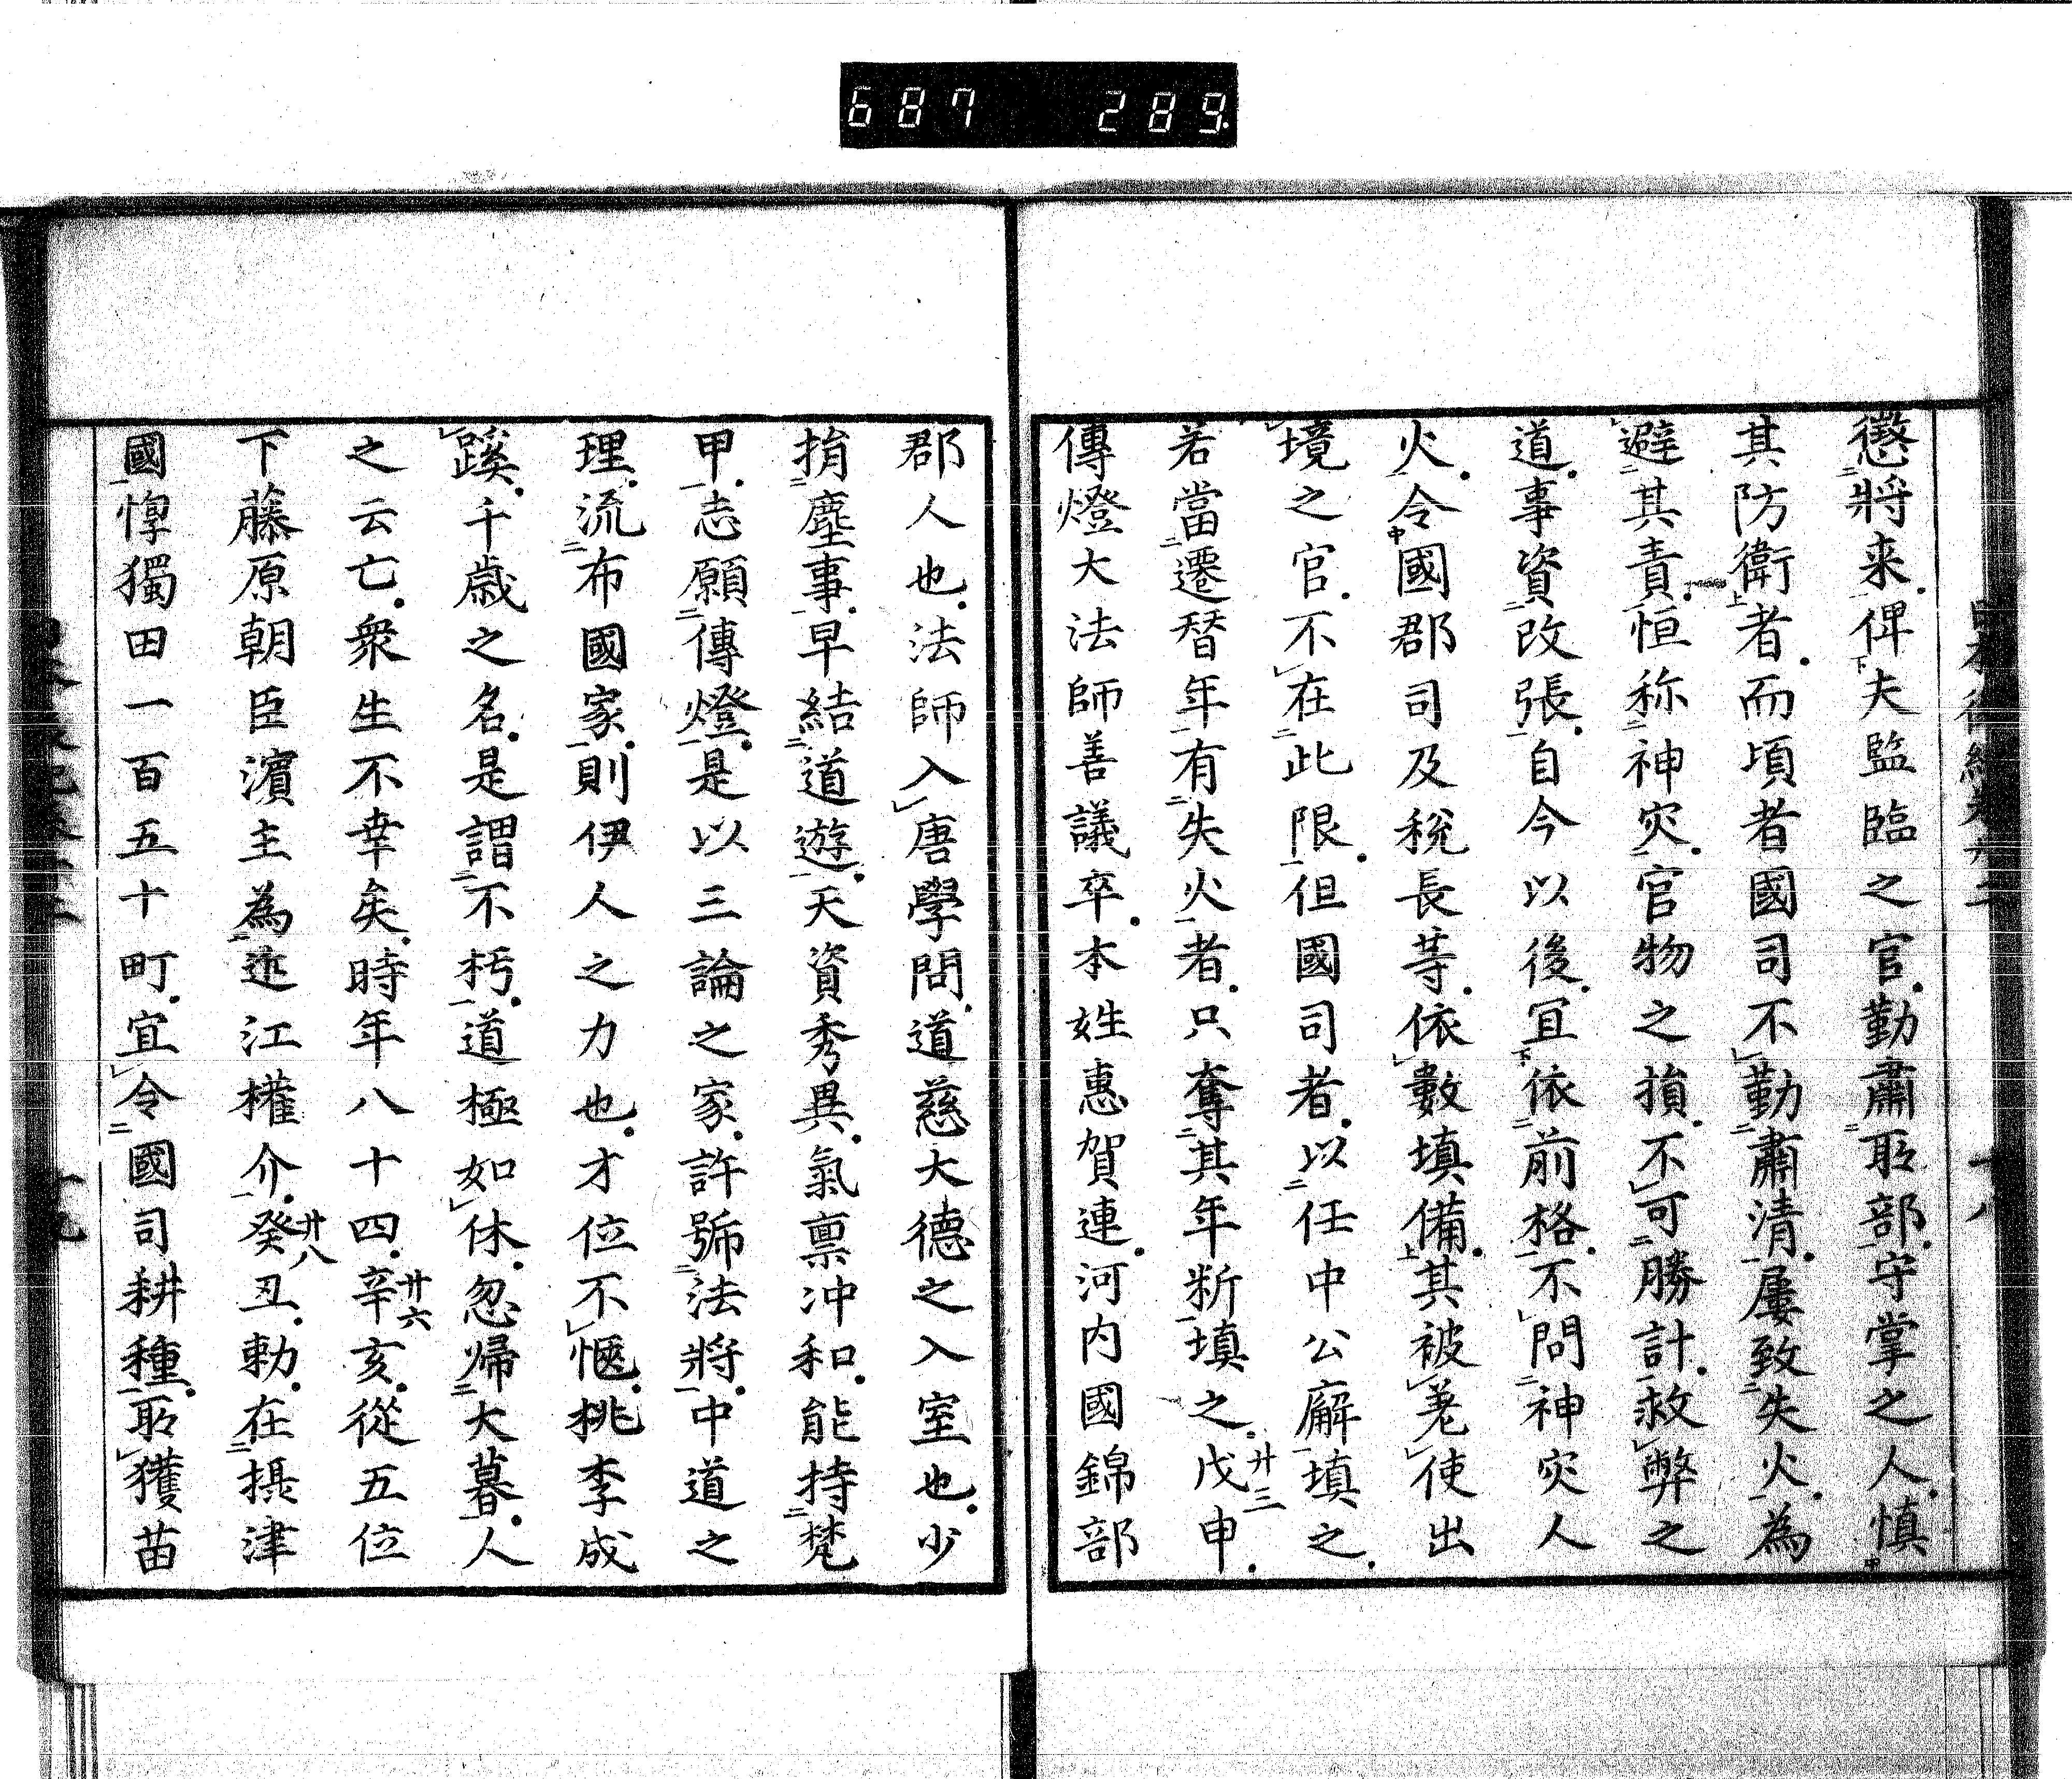 687 289
懲將来俾夫監臨之官勤肅所部守掌之人慎
其防衛者而頃者國司不勤肅清屢致失火為
避其責恒称神灾官物之損不可勝計救弊之
道事資改張自今以後冝依前格不問神灾人
火令國郡司及稅長等依數填備其被差使出
境之官不在此限但國司者以任中公廨填之
若當遷替年有失火者只奪其年断填之戊申
廿三
傳燈大法師善議卒本姓惠賀連河内國錦部
郡人也法師入唐學問道慈大德之入室也少
捐塵事早結道遊天資秀異氣禀冲和能持梵
甲志願傳燈是以三論之家許號法將中道之
理流布國家則伊人之力也才位不愜桃李成
蹊千歳之名是謂不朽道極如休忽歸大暮人
之云亡衆生不幸矣時年八十四辛亥從五位
廿六
下藤原朝臣濱主為近江權介癸丑勅在摂津
廿八
國惸獨田一百五十町宜令國司耕種所獲苗